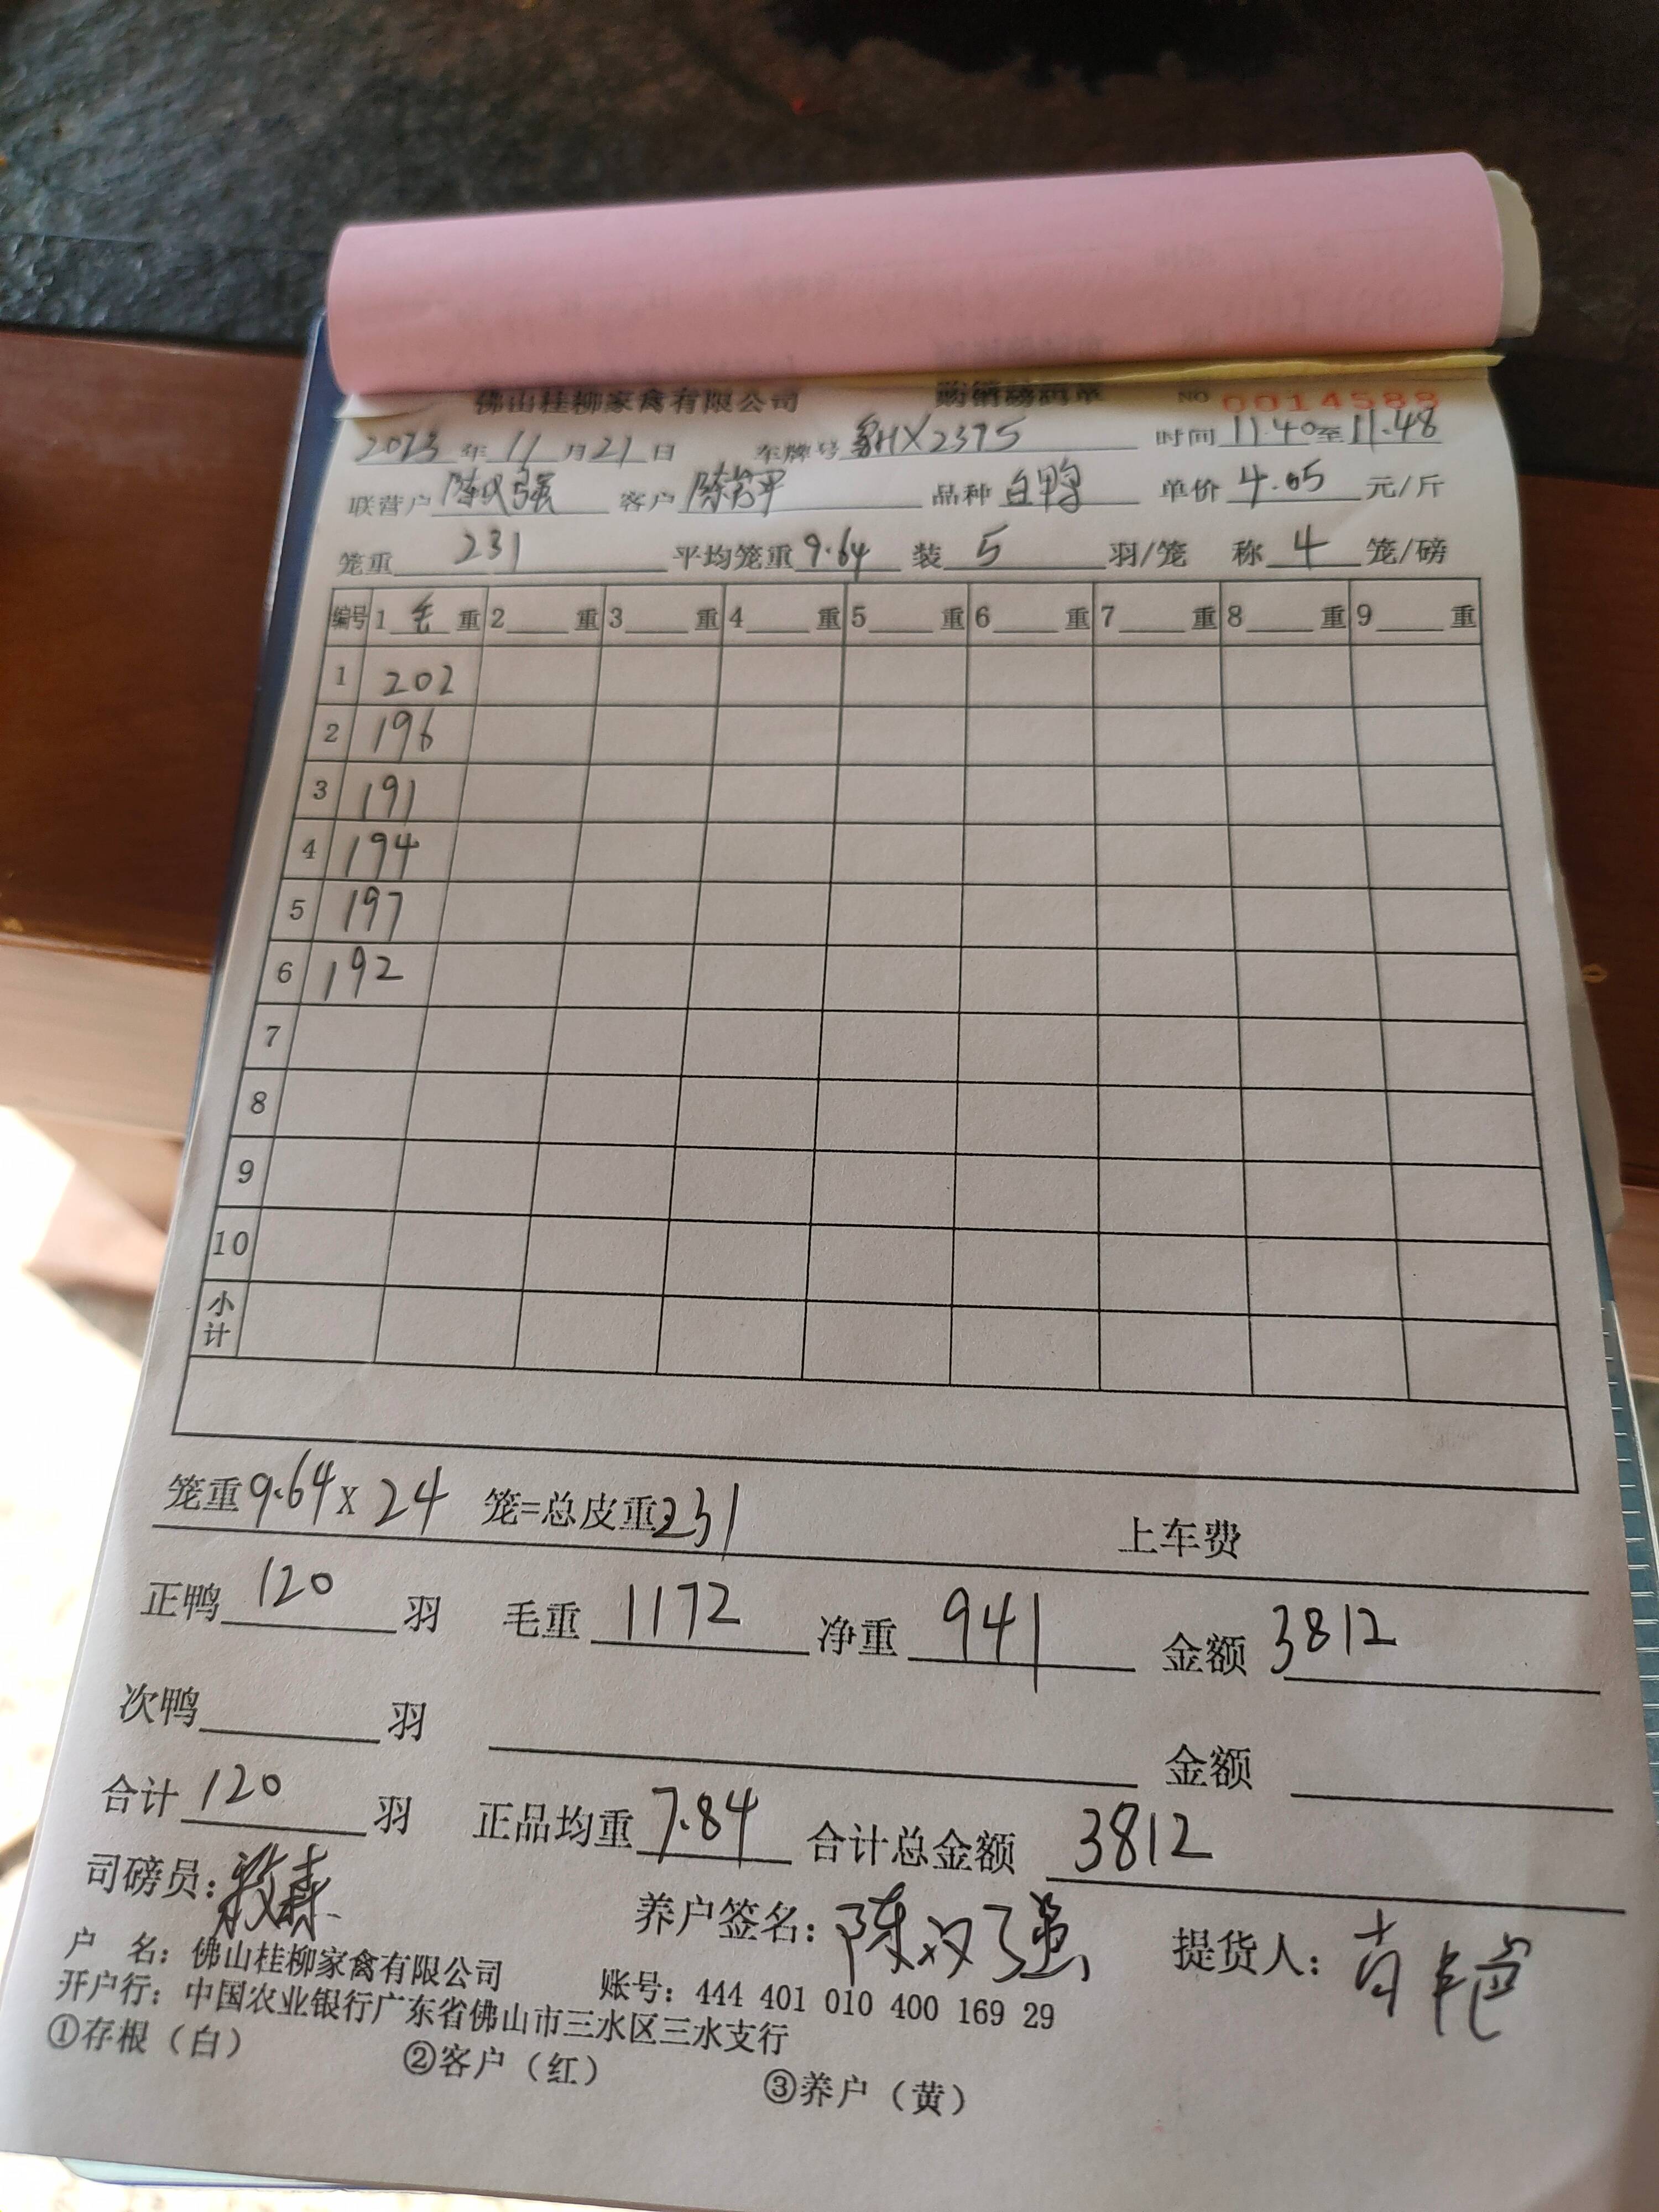 佛山桂柳家禽有限公司 购销磅码单 NO 0014588
2023年11月21日 车牌号 粤HX2375 时间 11.40至11.48
联营户 陈汉强 客户 品种 白鸭 单价 4.05 元/斤
笼重 231 平均笼重 9.64 装 5 羽/笼 称 4 笼/磅
编号 1 毛 重 2 重 3 重 4 重 5 重 6 重 7 重 8 重 9 重
1 202
2 196
3 191
4 194
5 197
6 192
7
8
9
10
小计
笼重 9.64 x 24 笼=总皮重 231 上车费
正鸭 120 羽 毛重 1172 净重 941 金额 3812
次鸭 羽 金额
合计 120 羽 正品均重 7.84 合计总金额 3812
司磅员: 养户签名: 陈汉强 提货人:
户 名: 佛山桂柳家禽有限公司 账号: 444 401 010 400 169 29
开户行: 中国农业银行广东省佛山市三水区三水支行
①存根（白） ②客户（红） ③养户（黄）